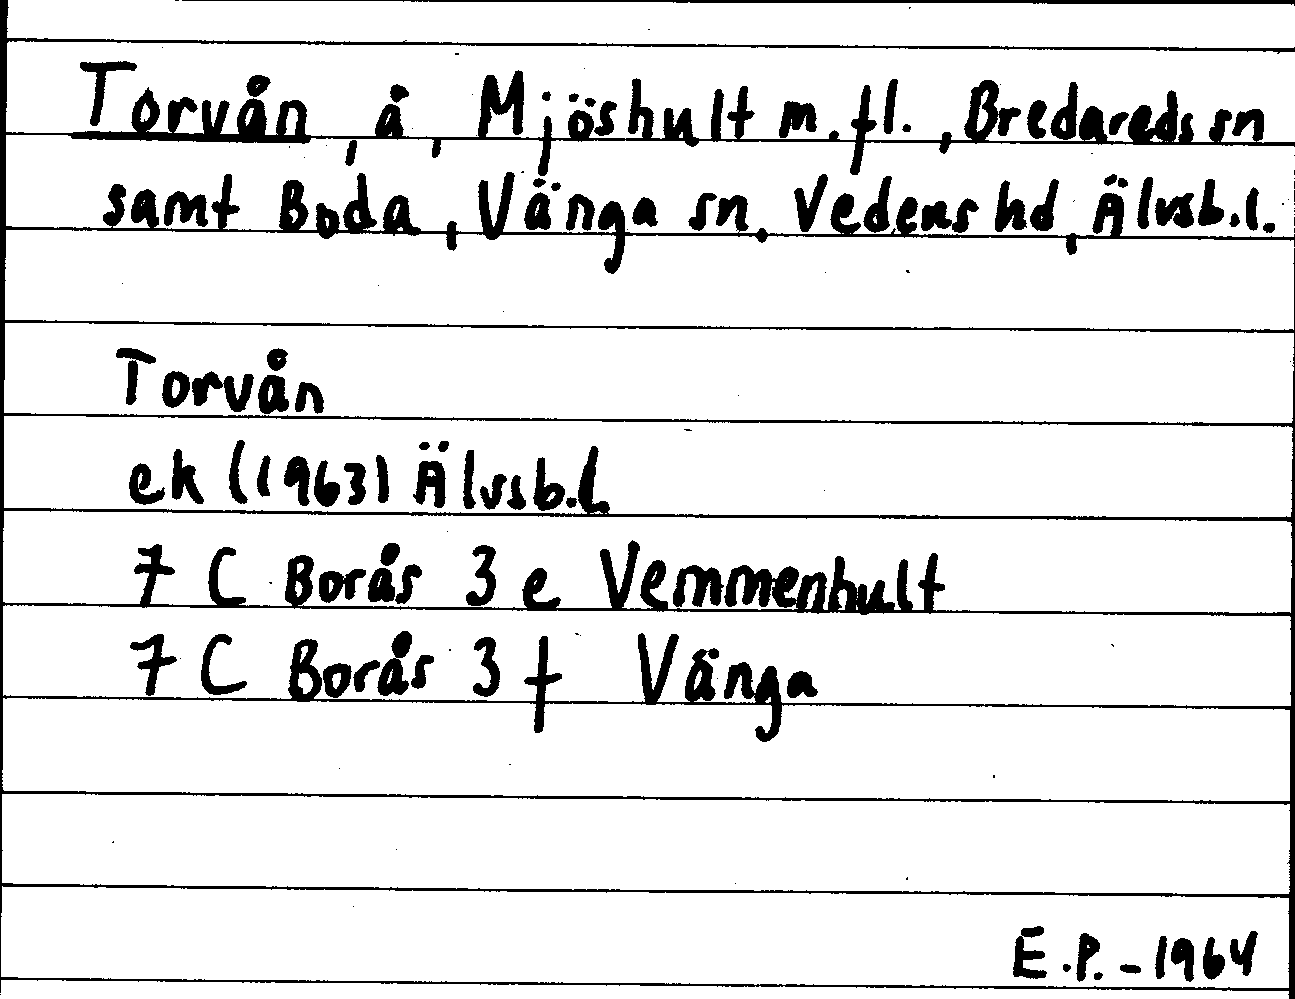 Torvån, å, Mjöshult m.fl., Bredareds sn
samt Boda, Vänga sn. Vedens hd, Älvsb.l.
Torvån
ek (1963) Älvsb.l.
7 C Borås 3 e Vemmenhult
7 C Borås 3 f Vänga
E.P. - 1964